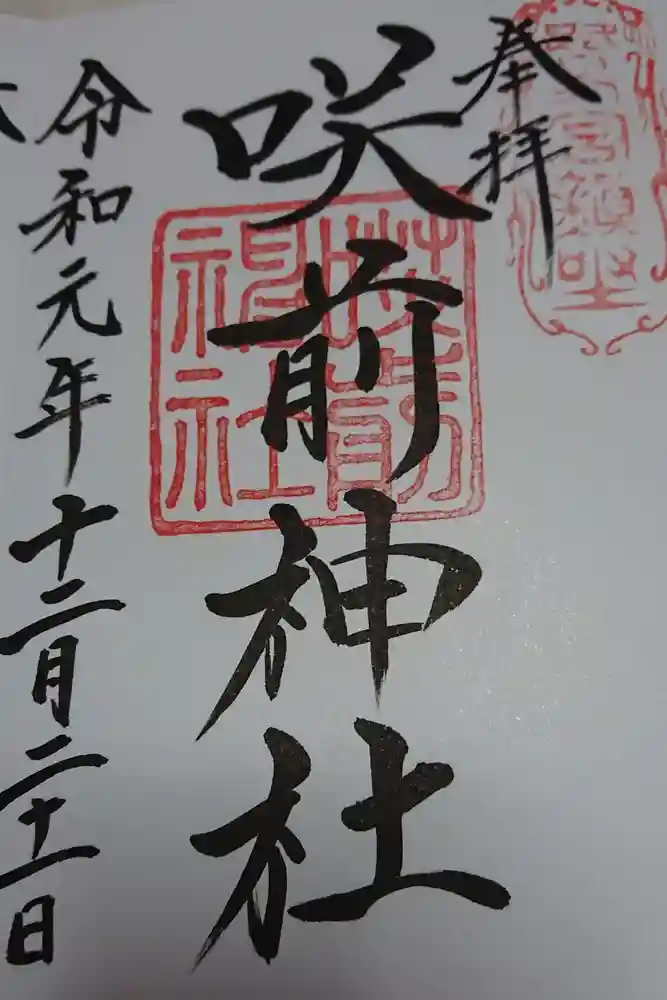 奉拝
咲前神社
令和元年十二月二十一日